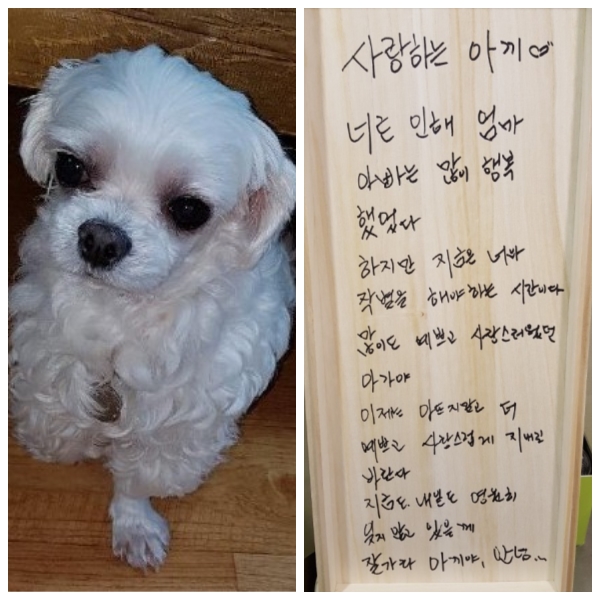 사랑하는 아끼♡
너로 인해 엄마
아빠는 많이 행복
했었다
하지만 지금은 너와
작별을 해야하는 시간이다
많이도 예쁘고 사랑스러웠던
아가야
이제는 아프지말고 더
예쁘고 사랑스럽게 지내길
바란다
지금도 내일도 영원히
잊지 않고 있을께
잘가라 아끼야, 안녕...